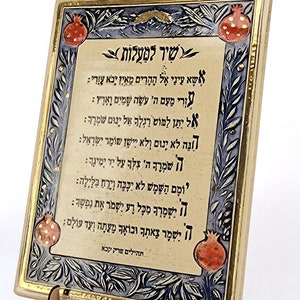 שיר למעלות
אשא עיני אל ההרים מאין יבא עזרי:
עזרי מעם ה' עשה שמים וארץ:
אל יתן למוט רגלך אל ינום שמרך:
הנה לא ינום ולא יישן שומר ישראל:
ה' שמרך ה' צלך על יד ימינך:
יומם השמש לא יככה וירח בלילה:
ה' ישמרך מכל רע ישמר את נפשך:
ה' ישמר צאתך ובואך מעתה ועד עולם:
תהילים פרק קכא